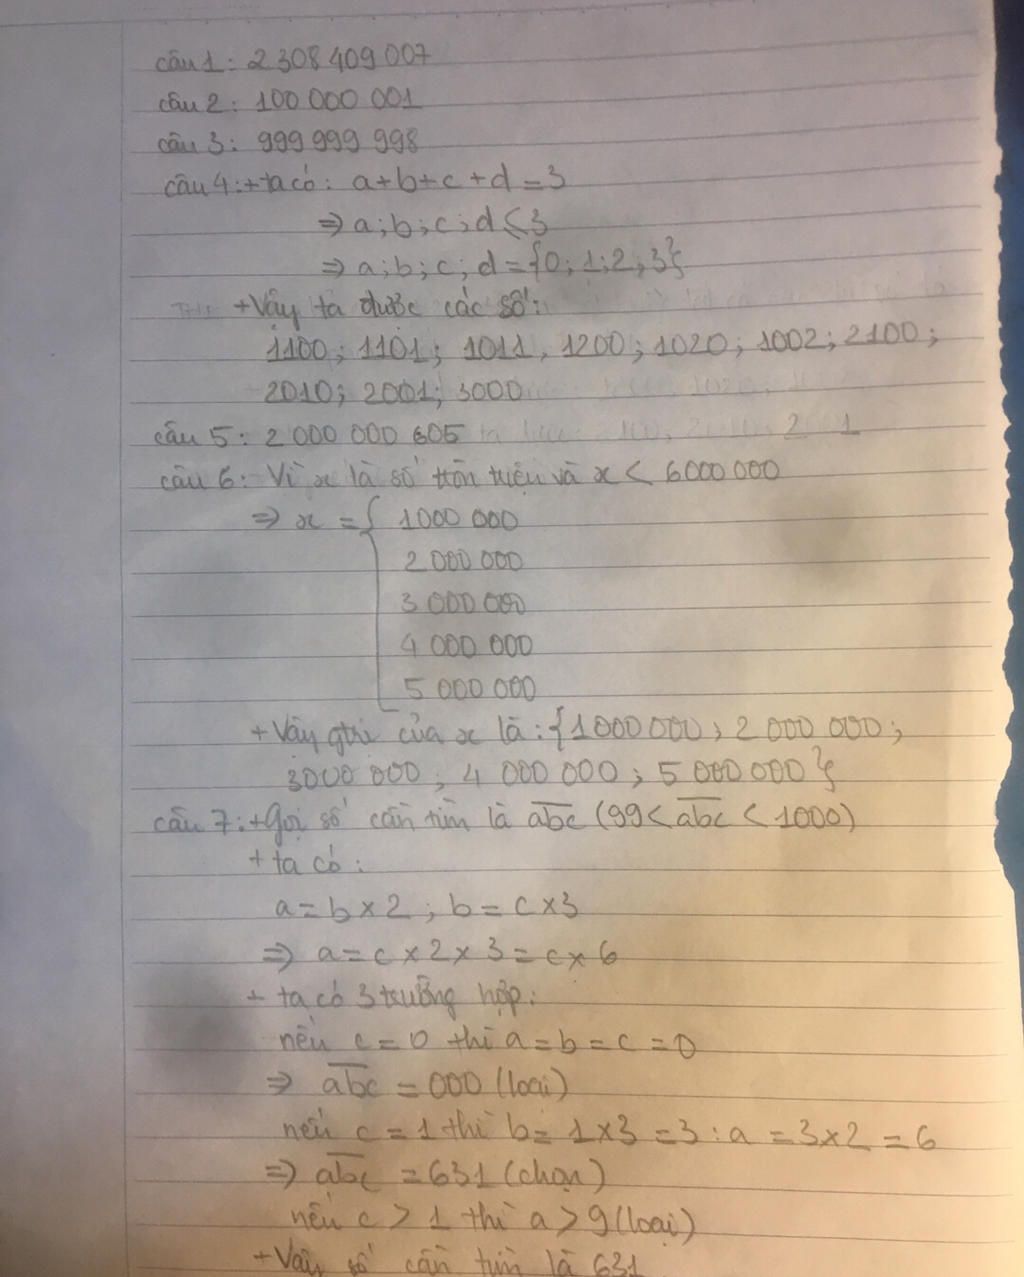 câu 1: 2 308 409 007
câu 2: 100 000 001
câu 3: 999 999 998
câu 4: + ta có: a+b+c+d=3
=> a;b;c;d ≤ 3
=> a;b;c;d = {0; 1; 2; 3}
+ Vậy ta được các số:
1100; 1101; 1011, 1200; 1020; 1002; 2100;
2010; 2001; 3000
câu 5: 2 000 000 605
câu 6: Vì x là số tròn triệu và x < 6000 000
=> x = { 1000 000
2 000 000
3 000 000
4 000 000
5 000 000
+ Vậy gtrị của x là: {1000 000; 2 000 000;
3000 000; 4 000 000; 5 000 000}
câu 7: + Gọi số cần tìm là a̅b̅c̅ (99 < a̅b̅c̅ < 1000)
+ ta có:
a = b × 2 ; b = c × 3
=> a = c × 2 × 3 = c × 6
+ ta có 3 trường hợp:
nếu c = 0 thì a = b = c = 0
=> a̅b̅c̅ = 000 (loại)
nếu c = 1 thì b = 1×3 = 3 : a = 3×2 = 6
=> a̅b̅c̅ = 631 (chọn)
nếu c > 1 thì a > 9 (loại)
+ Vậy số cần tìm là 631